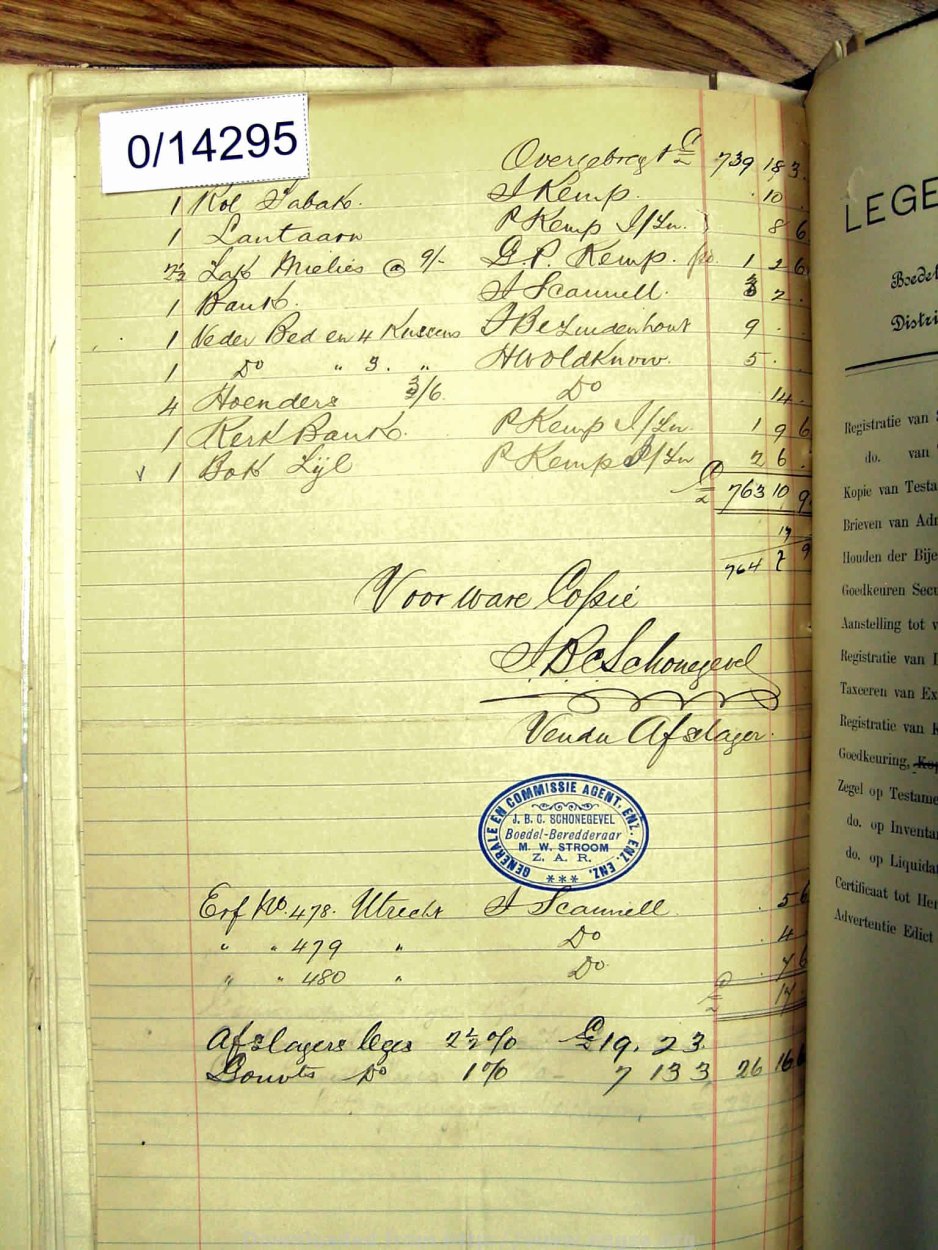 0/14295
Overgebragt £ 739 18 3
1 Rol Tabak. J Kemp. 10
1 Lantaarn P Kemp J/Zn. 8 6
2½ Zak Mielies @ 9/- G. P. Kemp. 1 2 6
1 Bank. J Scannell. 2
1 Veder Bed en 4 Kussens J Bezuidenhout 9
1 Do " 3. " H Woldknow. 5
4 Hoenders 3/6 Do 14
1 Kerk Bank. P Kemp J/Zn. 1 9 6
1 Bok Zyl P Kemp J/Zn 2 6
£ 763 10 9
17
764 7 9
Voor ware Copie
J. B. C. Schonegevel
Vendu Afslager.
GENERALE EN COMMISSIE AGENT, ENZ. ENZ. ENZ.
J. B. C. SCHONEGEVEL
Boedel-Beredderaar
M. W. STROOM
Z. A. R.
***
Erf No. 478. Utrecht J Scannell. 5 6
" " 479 " Do 4
" " 480 " Do 7 6
£ 17
Afslagers leges 2½ % £19. 2 3
Gouvts Do 1 % 7 13 3 26 16 6
LEGE
Boedel
Distri
Registratie van
do. van
Kopie van Testa
Brieven van Adr
Houden der Bije
Goedkeuren Secu
Aanstelling tot v
Registratie van
Taxeeren van Ex
Registratie van
Goedkeuring, Kop
Zegel op Testame
do. op Inventa
do. op Liquida
Certificaat tot Her
Advertentie Edict